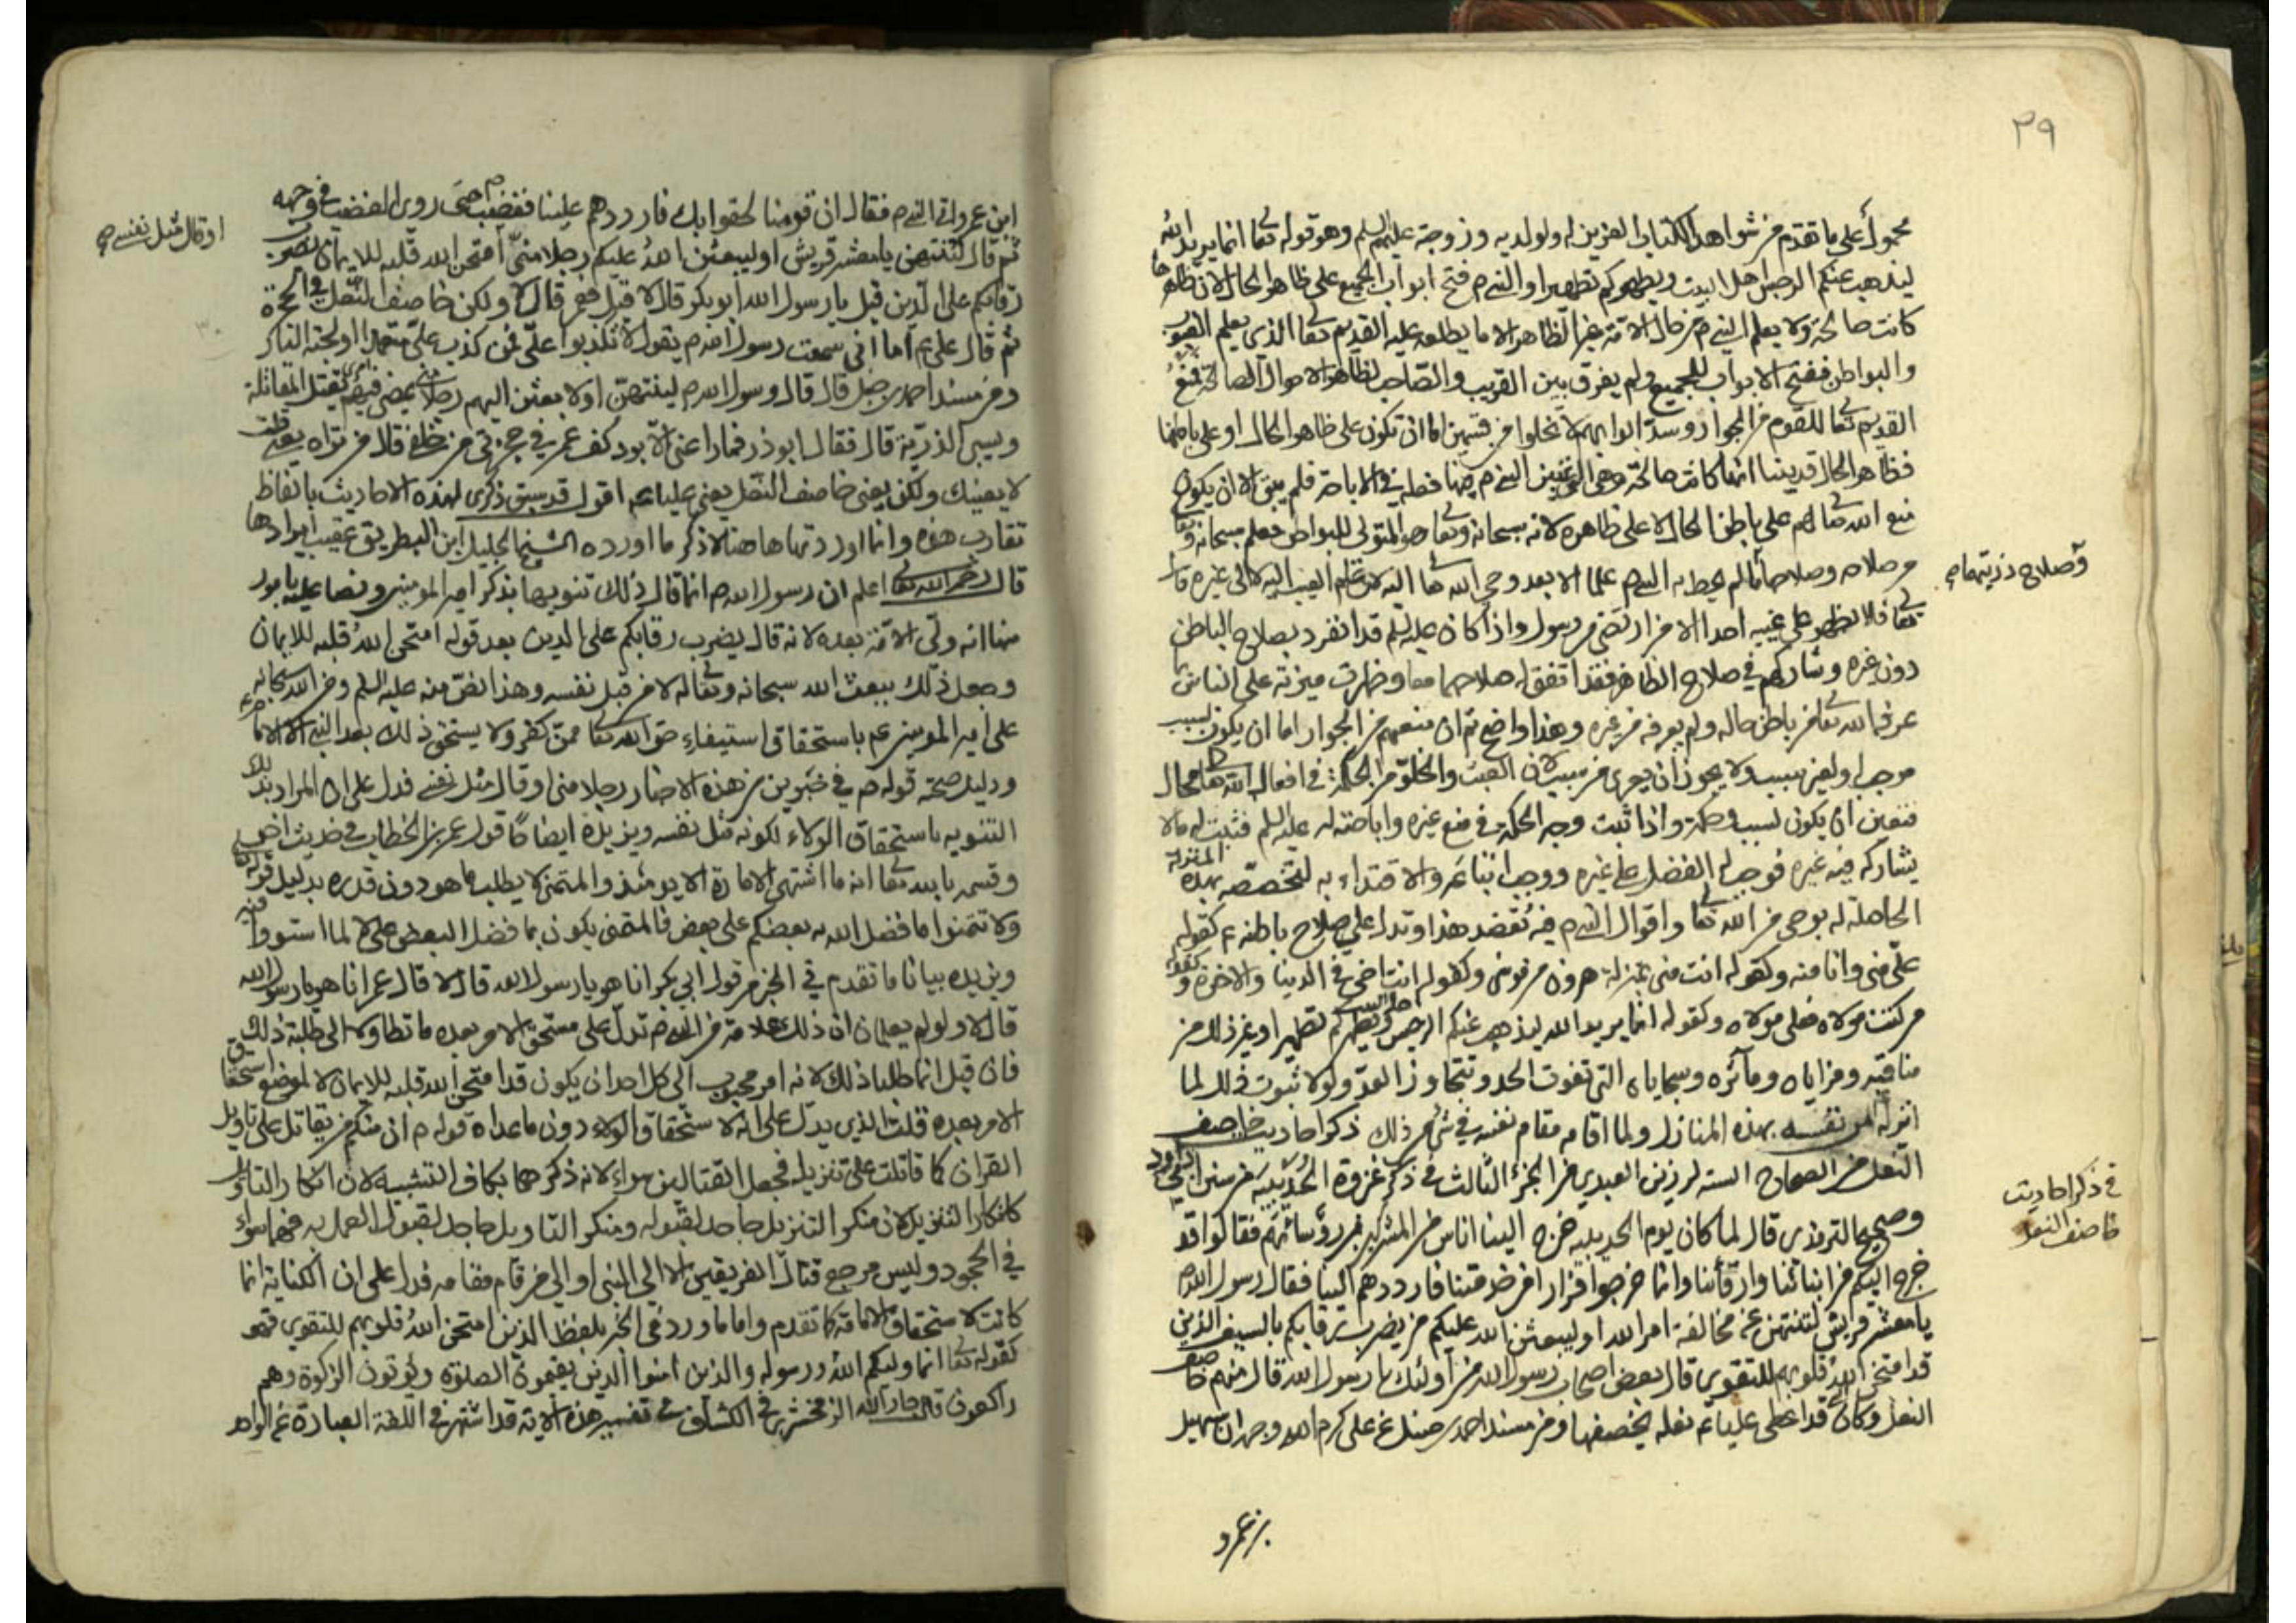 ٣٩
محمولاً على ما تقدم من شواهد الكتاب العزيز له ولولديه وزوجته عليهم السلم وهو قوله تعا انما يريد الله
ليذهب عنكم الرجس اهل البيت ويطهركم تطهيرا والنبي ص فتح ابواب الجميع على ظاهر الحال لان ظاهرها
كانت صالحة ولا يعلم النبي ص من حال الامة غير الظاهر الا ما يطلعه عليه القديم تعالى الذي يعلم الغيوب
والبواطن ففتح الابواب للجميع ولم يفرق بين القريب والصاحب لظاهر الاحوال الصالحة فمنع
القديم تعالى للقوم من الجوار وسد ابوابهم لا تخلوا من قسمين اما ان تكون على ظاهر الحال او على باطنها
فظاهر الحال قد بينا انها كانت صالحة وهي التي بنى النبي ص عليها فعله في الاباحة فلم يبق الا ان يكون
منع الله تعا لهم على باطن الحال لا على ظاهره لانه سبحانه وتعا هو المتولى للبواطن فعلم سبحانه وتعا
من صلاحه وصلاحها ما لم يحط به النبي ص علما الا بعد وحي الله تعا اليه لان علم الغيب اليه لا الى غيره قال
وصلاح ذريتهما ص
تعا فلا يظهر على غيبه احدا الا من ارتضى من رسول واذا كان عليه السلم قد انفرد بصلاح الباطن
دون غيره وشاركهم في صلاح الظاهر فقد اتفق له صلاحهما معا وظهرت ميزته على الناس بما
عرفه الله تعا من باطن حاله ولم يعرفه من غيره وهذا واضح ثم ان منعهم من الجوار اما ان يكون لسبب
موجب او لغير سبب ولا يجوز ان يعرى من سبب لان العبث والخلو من الحكمة في افعال الله تعا محال
فتعين ان يكون لسبب وحكمة واذا ثبت وجه الحكمة في منع غيره واباحته له عليه السلم فثبت له ما لا
يشاركه فيه غيره فوجب له الفضل على غيره ووجب اتباعه والاقتداء به لتخصصه بهذه المنزلة
الحاصلة له بوحي من الله تعا واقوال النبي ص فيه تعضد هذا وتدل على صلاح باطنه ع كقوله
على مني وانا منه وكقوله انت مني بمنزلة هرون من موسى وكقوله انت اخي في الدنيا والاخرة وكقوله
من كنت مولاه فعلى مولاه وكقوله انما يريد الله ليذهب عنكم الرجس اهل البيت ويطهركم تطهيرا وغير ذلك من
مناقبه ومزاياه ومآثره وسجاياه التي تفوت الحد وتتجاوز العد ولولا ثبوت ذلك لما
انزله من نفسه بهذه المنازل ولما اقامه مقام نفسه في شيء من ذلك ذكر احاديث خاصف
في ذكر احاديث
خاصف النعل
النعل من الصحاح الستة لرزين العبدري من الجزء الثالث في ذكر غزوة الحديبية من سنن ابي داود
وصحيح الترمذي قال لما كان يوم الحديبية خرج الينا اناس من المشركين من رؤسائهم فقالوا قد
خرج اليكم من ابنائنا وارقائنا وانما خرجوا فرارا من خدمتنا فارددهم الينا فقال رسول الله ص
يا معشر قريش لتنتهن عن مخالفة امر الله او ليبعثن الله عليكم من يضرب رقابكم بالسيف الذين
قد امتحن الله قلوبهم للتقوى قال بعض اصحاب رسول الله من اولئك يا رسول الله قال منهم خاصف
النعل وكان قد اعطى عليا ع نعله يخصفها ومن مسند احمد بن حنبل عن على كرم الله وجهه ان سهيل
بن عمرو
ابن عمرو اتى النبي ص فقال ان قومنا لحقوا بك فارددهم علينا فغضب ص حتى روي الغضب في وجهه
ثم قال لتنتهن يا معشر قريش او ليبعثن الله عليكم رجلا مني امتحن الله قلبه للايمان يضرب
او قال مثل نفسي ص
رقابكم على الدين قيل يا رسول الله ابو بكر قال لا قيل فعمر قال لا ولكن خاصف النعل في الحجرة
٣٠
ثم قال على ع اما اني سمعت رسول الله ص يقول لا تكذبوا علي فمن كذب علي متعمدا اولجته النار
ومن مسند احمد بن حنبل قال قال رسول الله ص لينتهن او لابعثن اليهم رجلا يمضي فيهم امري يقتل المقاتلة
ويسبي الذرية قال فقال ابو ذر فما راعني الا برد كف عمر في حجزتي من خلفي قال من تراه يعني قلت
لا يعنيك ولكن يعني خاصف النعل يعني عليا ع اقول قد سبق ذكري لهذه الاحاديث بالفاظ
تقارب هذه وانما اوردتها هاهنا لاذكر ما اورده الشيخ الجليل ابن البطريق عقيب ايرادها
قال رحمه الله تعالى اعلم ان رسول الله ص انما قال ذلك تنويها بذكر امير المومنين ونصا عليه بامور
منها انه ولي الامة بعده لانه قال يضرب رقابكم على الدين بعد قوله امتحن الله قلبه للايمان
وجعل ذلك ببعث الله سبحانه وتعالى له لا من قبل نفسه وهذا نص منه عليه السلم ومن الله سبحانه
على امير المومنين ع باستحقاق استيفاء حق الله تعا ممن كفر ولا يستحق ذلك بعد النبي الا الامام
ودليل صحة قوله ص في خبرين من هذه الاخبار رجلا مني او قال مثل نفسي فدل على ان المراد بذلك
التنويه باستحقاق الولاء لكونه مثل نفسه ويزيده ايضاحا قول عمر بن الخطاب في حديث اخر
وقسمه بالله تعا انه ما اشتهى الامارة الا يومئذ والمتمنى لا يطلب ما هو دون قدره بدليل قوله تعا
ولا تتمنوا ما فضل الله به بعضكم على بعض فالمتمنى يكون بما فضل البعض على لا لما استووا فيه
ويزيده بيانا ما تقدم في الخبر من قول ابي بكر انا هو يا رسول الله قال لا قال عمر انا هو يا رسول الله
قال لا ولو لم يعلما ان ذلك علامة من الله ص تدل على مستحق الامر بعده ما تطاولا الى طلبة ذلك
فان قيل انما طلبا ذلك لانه امر محبوب الى كل احد ان يكون قد امتحن الله قلبه للايمان لا لموضع استحقاق
الامر بعده قلت الذي يدل على انه لاستحقاق الولاء دون ما عداه قوله ص ان منكم من يقاتل على تاويل
القران كما قاتلت على تنزيله فجعل القتالين سواء لانه ذكرهما بكاف التشبيه لان انكار التاويل
كانكار التنزيل لان منكر التنزيل جاحد لقبوله ومنكر التاويل جاحد لقبول العمل به فهما سواء
في الجحود وليس مرجع قتال الفريقين الا الى النبي او الى من قام مقامه فدل على ان الكناية انما
كانت لاستحقاق الامامة كما تقدم واما ما ورد في الخبر بلفظ الذين امتحن الله قلوبهم للتقوى فهو
كقوله تعا انما وليكم الله ورسوله والذين امنوا الذين يقيمون الصلوة ويؤتون الزكوة وهم
راكعون قال جار الله الزمخشري في الكشاف في تفسير هذه الاية قد اشتهر في اللغة العبارة عن الواحد